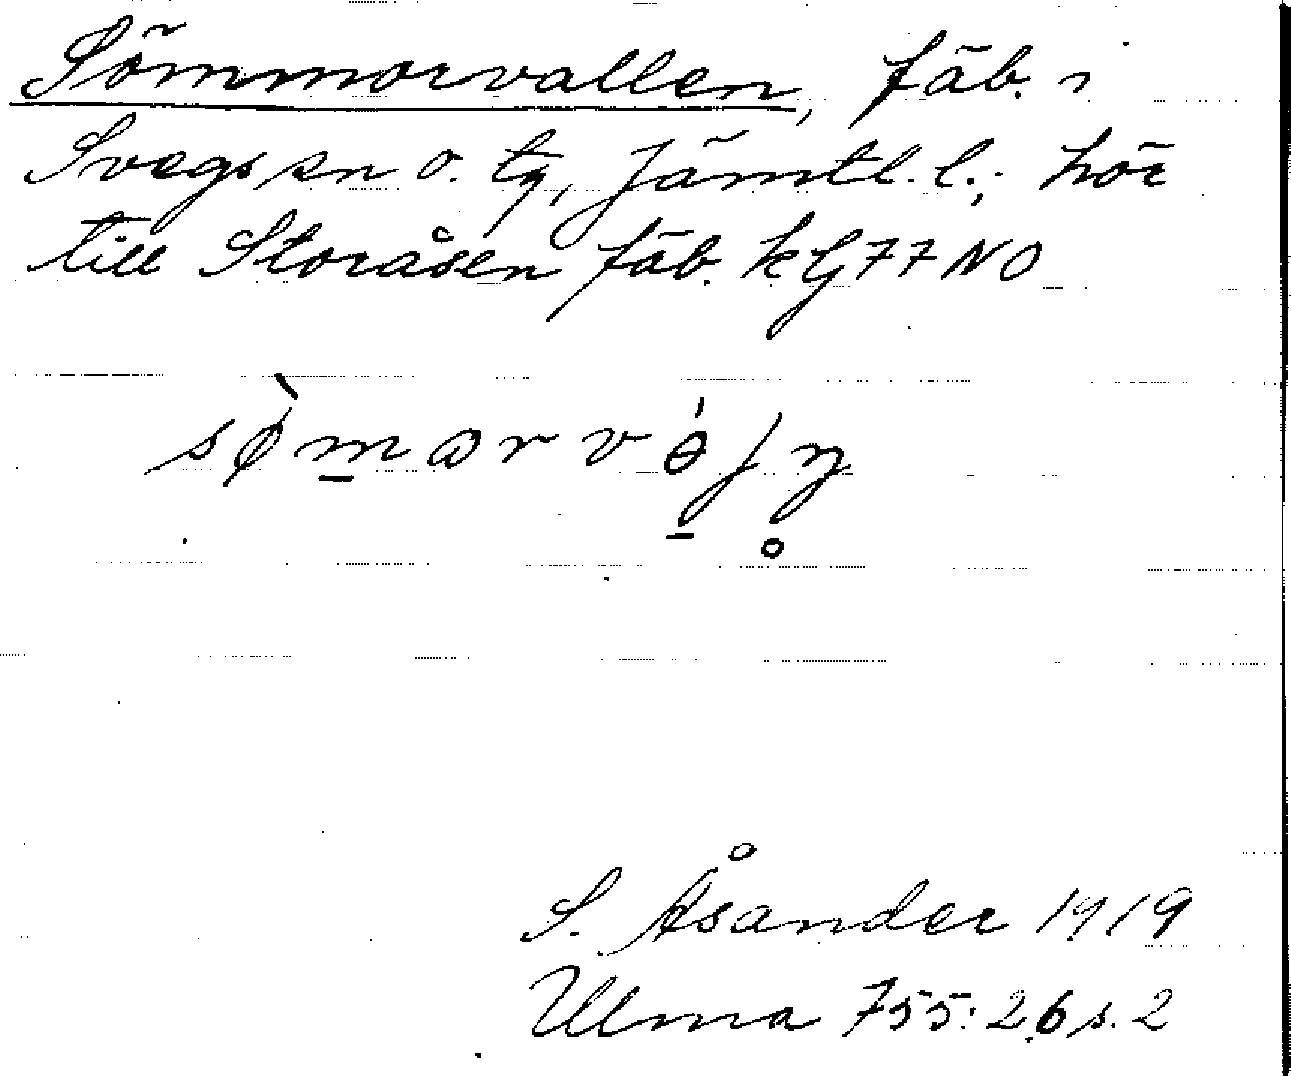 Sömmorvallen, fäb. i
Svegs sn o. tg, Jämtl. l.; hör
till Storåsen fäb. kG77NO
S. Åsander 1919
Ulma 755:26 s. 2